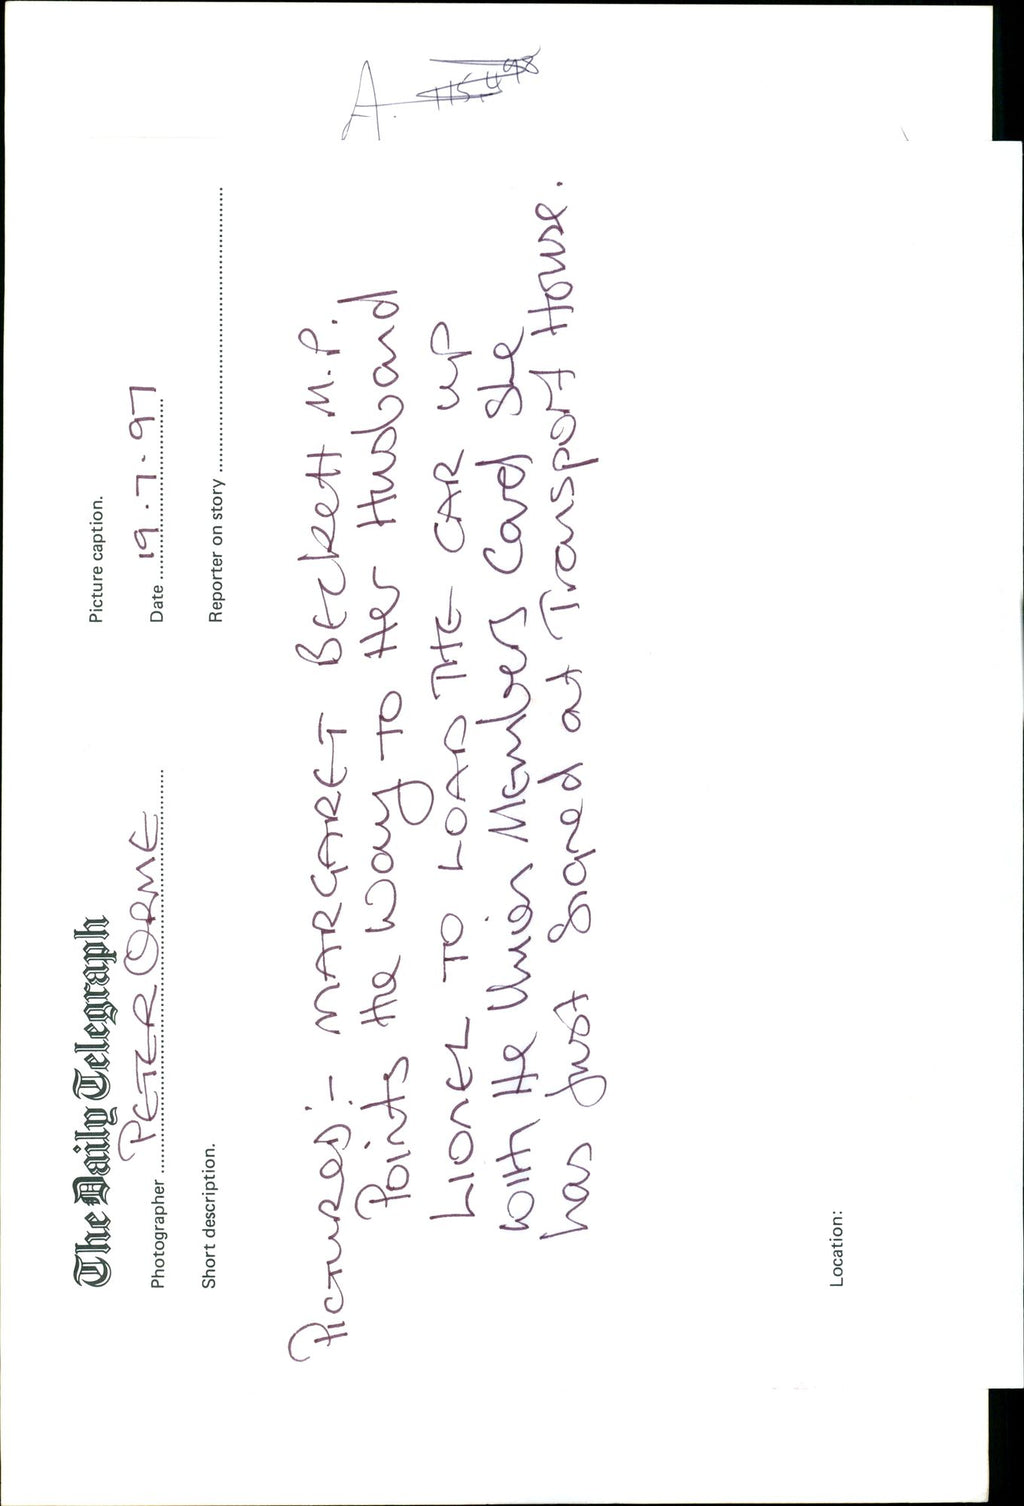 The Daily Telegraph
Picture caption.
Photographer PETER ORME
Date 19.7.97
Short description.
Reporter on story
PICTURED:- MARGARET BECKETT M.P.
Points the Way TO Her Husband
LIONEL TO LOAD THE CAR UP
WITH the Union Members Card She
has just Signed at Transport House.
Location:
A.